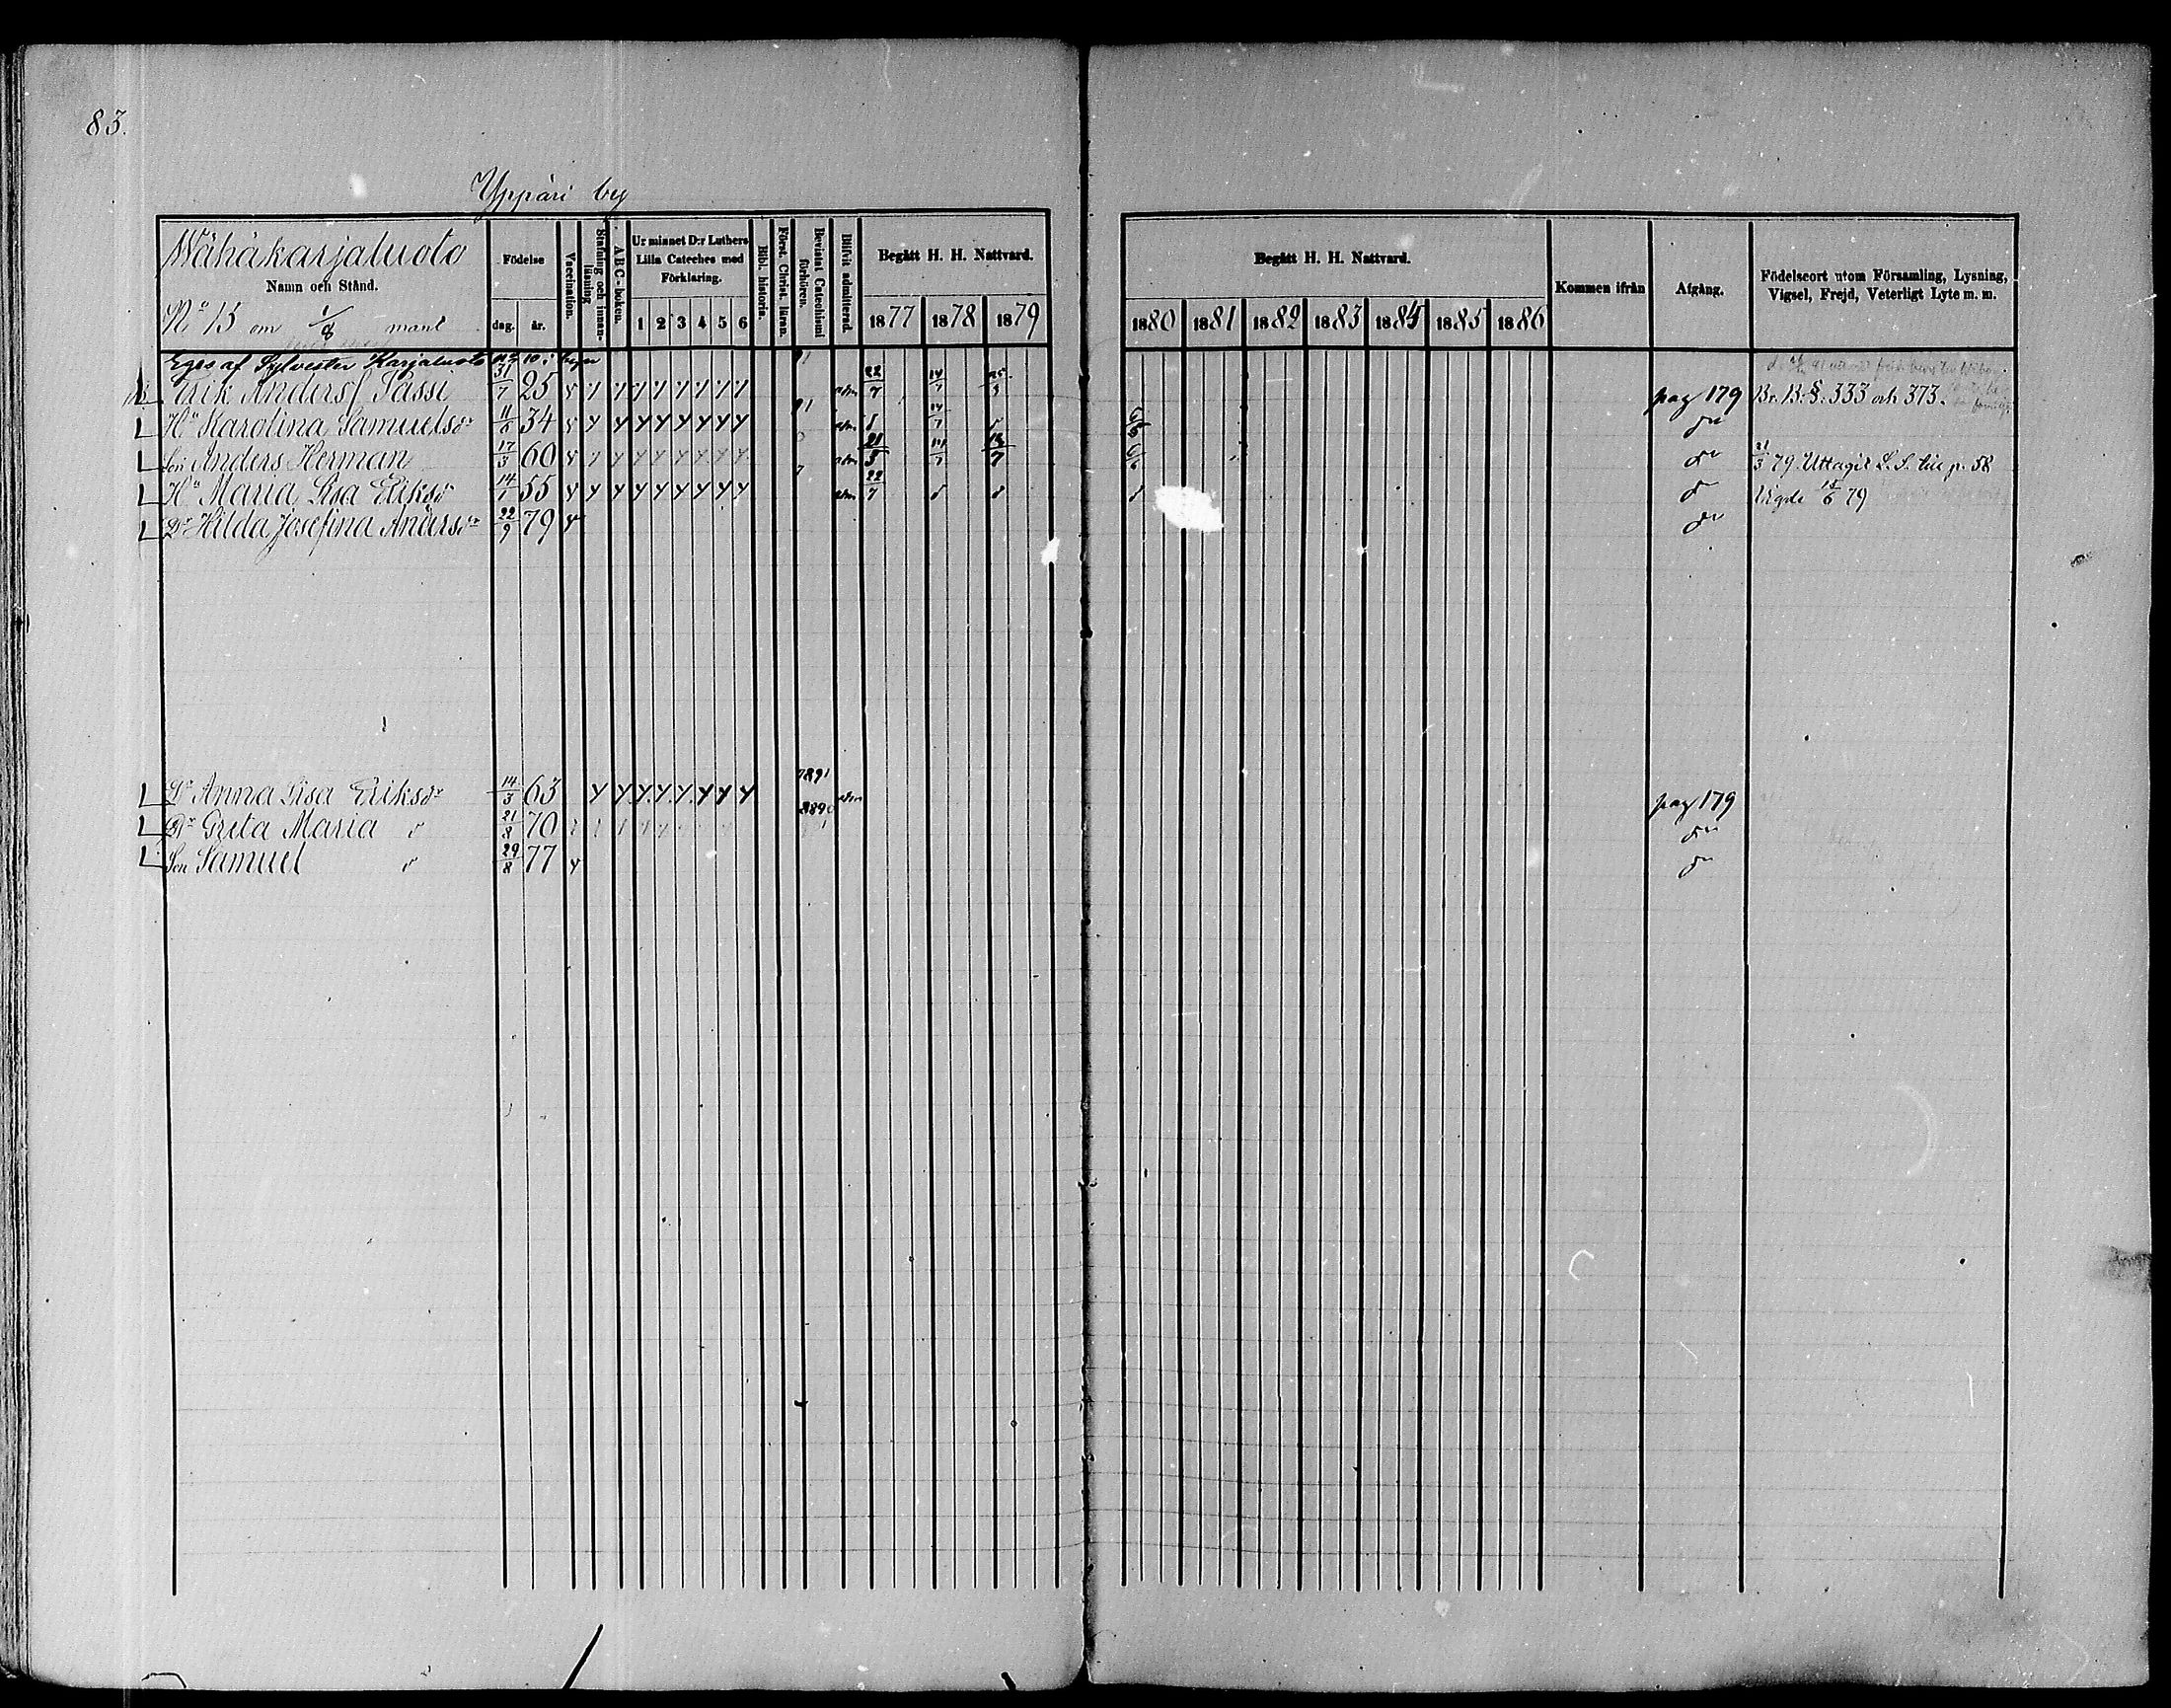 83.
Yppäri by
Wähäkarjaluoto
Namn och Stånd.
No 15 om 1/8 mantl
Födelse
dag. år.
Vaccination.
Stafning och innanläsning
A B C-boken.
Ur minnet D:r Luthers Lilla Cateches med Förklaring.
1 2 3 4 5 6
Bibl. historia.
Först. Christ. läran.
Bevistat Catechismi förhören.
Blifvit admitterad.
Begått H. H. Nattvard.
1877 1878 1879
Begått H. H. Nattvard.
1880 1881 1882 1883 1884 1885 1886
Kommen ifrån
Afgång.
Födelseort utom Församling, Lysning, Vigsel, Frejd, Veterligt Lyte m. m.
Eges af Sylvester Karjaluoto No 10 i byn
Erik Andersf Passi 31/7 25 adm 22/7 14/7 pag 179 Br. B. §. 333 och 373.
Hu Karolina Samuelsdr 11/6 34 adm 14/7
Son Anders Herman 17/3 60 adm 21/3 79. Uttagit L. S. till p. 58
Hu Maria Lisa Eriksdr 14/1 55 adm 22/7 Vigde 15/6 79
Dr Hilda Josefina Andersdr 22/9 79
Dr Anna Lisa Eriksdr 14/3 63 1891 adm pag 179
Dr Greta Maria 21/8 70 1890
Son Samuel 29/8 77